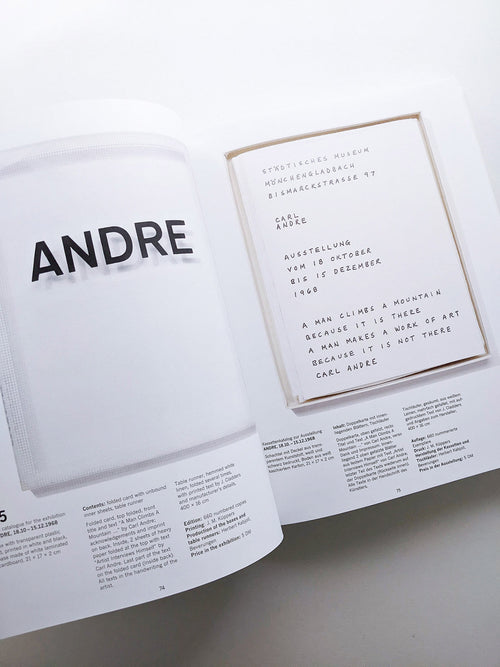 ANDRE
5
catalogue for the exhibition
ANDRE, 18.10 – 15.12.1968
with transparent plastic
printed in white and black,
base made of white laminated
cardboard, 21 × 17 × 2 cm
Contents: folded card with unbound
inner sheets, table runner
Folded card, top folded, front
title and text “A Man Combs A
Mountain …” by Carl Andre,
acknowledgements and imprint
on back. Inside, 2 sheets of heavy
paper folded at the top with text
“Artist Interviews Himself” by
Carl Andre. Last part of the text
on the folded card (inside back).
All texts in the handwriting of the
artist.
Table runner, hemmed white
linen, folded several times
with printed text by J. Dadders
and manufacturer's details,
400 × 16 cm
Edition: 660 numbered copies
Printing: J. M. Küppers
Production of the boxes and
table runners: Herbert Kaball,
Beverungen
Price in the exhibition: 5 DM
74
STÄDTISCHES MUSEUM
MÖNCHENGLADBACH
BISMARCKSTRASSE 97
CARL
ANDRE
AUSSTELLUNG
VOM 18 OKTOBER
BIS 15 DEZEMBER
1968
A MAN CLIMBS A MOUNTAIN
BECAUSE IT IS THERE
A MAN MAKES A WORK OF ART
BECAUSE IT IS NOT THERE
CARL ANDRE
Kassettenkatalog zur Ausstellung
ANDRE, 18.10. – 15.12.1968
Schachtel mit Deckel aus trans-
parentem Kunststoff, weiß und
schwarz bedruckt, Boden aus weiß
kaschiertem Karton, 21 × 17 × 2 cm
Inhalt: Doppelkarte mit innen-
liegenden Blättern, Tischläufer
Doppelkarte, oben gefalzt, recto
Titel und Text „A Man Combs A
Mountain …“ von Carl Andre, verso
Dank und Impressum, innen-
liegend 2 oben gefalzte Blätter
aus festem Papier mit Text „Artist
Interviews Himself“ von Carl Andre,
letzter Teil des Texts wiederum auf
der Doppelkarte (Rückseite innen).
Alle Texte in der Handschrift des
Künstlers.
Tischläufer, gesäumt, aus weißem
Leinen, mehrfach gefaltet, mit auf-
gedrucktem Text von J. Dadders
und Angaben zum Hersteller,
400 × 16 cm
Auflage: 660 nummerierte
Exemplare
Druck: J. M. Küppers
Herstellung der Kassetten und
Tischläufer: Herbert Kaball,
Beverungen
Preis in der Ausstellung: 5 DM
75